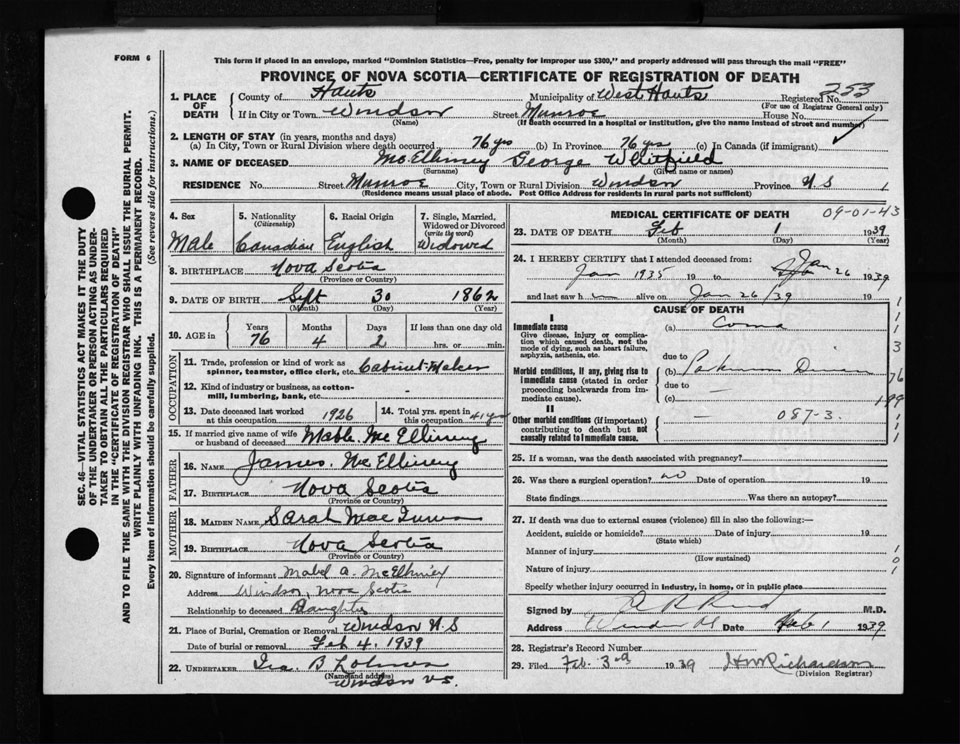 FORM 6
This form if placed in an envelope, marked "Dominion Statistics—Free, penalty for improper use $300," and properly addressed will pass through the mail "FREE"
PROVINCE OF NOVA SCOTIA—CERTIFICATE OF REGISTRATION OF DEATH
1. PLACE OF DEATH County of Hants Municipality of West Hants Registered No. 253
(For use of Registrar General only)
If in City or Town Windsor Street Munroe House No.
(Name) (If death occurred in a hospital or institution, give the name instead of street and number)
2. LENGTH OF STAY (in years, months and days)
(a) In City, Town or Rural Division where death occurred 76 yrs (b) In Province 76 yrs (c) In Canada (if immigrant)
3. NAME OF DECEASED McElhiney George Whitfield
(Surname) (Given name or names)
RESIDENCE No. Street Munroe City, Town or Rural Division Windsor Province N.S 1
(Residence means usual place of abode. Post Office Address for residents in rural parts not sufficient)
4. Sex Male
5. Nationality (Citizenship) Canadian
6. Racial Origin English
7. Single, Married, Widowed or Divorced (write the word) Widowed
8. BIRTHPLACE Nova Scotia
(Province or Country)
9. DATE OF BIRTH Sept 30 1862
(Month) (Day) (Year)
10. AGE in Years 76 Months 4 Days 2 If less than one day old hrs. or min.
OCCUPATION
11. Trade, profession or kind of work as spinner, teamster, office clerk, etc. Cabinet-Maker
12. Kind of industry or business, as cotton-mill, lumbering, bank, etc.
13. Date deceased last worked at this occupation 1926
14. Total yrs. spent in this occupation 41 yrs
15. If married give name of wife or husband of deceased Mable McElhiney
FATHER
16. NAME James McElhiney
17. BIRTHPLACE Nova Scotia
(Province or Country)
MOTHER
18. MAIDEN NAME Sarah Mac
19. BIRTHPLACE Nova Scotia
(Province or Country)
20. Signature of informant Mabel A. McElhiney
Address Windsor, Nova Scotia
Relationship to deceased Daughter
21. Place of Burial, Cremation or Removal Windsor N.S
Date of burial or removal Feb 4. 1939
22. UNDERTAKER Ira B
(Name and address)
Windsor N.S.
MEDICAL CERTIFICATE OF DEATH 09-01-43
23. DATE OF DEATH Feb 1 1939
(Month) (Day) (Year)
24. I HEREBY CERTIFY that I attended deceased from:
Jan 1935 19 to Jan 26 1939
and last saw h m alive on Jan 26/39 19
CAUSE OF DEATH
I
Immediate cause (a) Coma
Give disease, injury or complication which caused death, not the mode of dying, such as heart failure, asphyxia, asthenia, etc.
due to
Morbid conditions, if any, giving rise to immediate cause (stated in order proceeding backwards from immediate cause).
(b)
due to
(c)
II
Other morbid conditions (if important) contributing to death but not causally related to immediate cause.
087-3.
1
1
1
3
76
199
1
1
25. If a woman, was the death associated with pregnancy?
26. Was there a surgical operation? no Date of operation 19
State findings Was there an autopsy?
27. If death was due to external causes (violence) fill in also the following:—
Accident, suicide or homicide? Date of injury 19
(State which)
Manner of injury
(How sustained)
Nature of injury
Specify whether injury occurred in industry, in home, or in public place
1
0
1
Signed by M.D.
Address Windsor Date Feb 1 1939
28. Registrar's Record Number
29. Filed Feb. 3rd 1939 Richardson
(Division Registrar)
SEC. 46—VITAL STATISTICS ACT MAKES IT THE DUTY
OF THE UNDERTAKER OR PERSON ACTING AS UNDER-
TAKER TO OBTAIN ALL THE PARTICULARS REQUIRED
IN THE "CERTIFICATE OF REGISTRATION OF DEATH"
AND TO FILE THE SAME WITH THE DIVISION REGISTRAR WHO SHALL ISSUE THE BURIAL PERMIT.
WRITE PLAINLY WITH UNFADING INK. THIS IS A PERMANENT RECORD.
Every item of information should be carefully supplied. (See reverse side for instructions.)